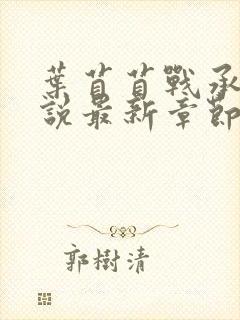 葉苜苜戰承
說最新章節
郭樹清